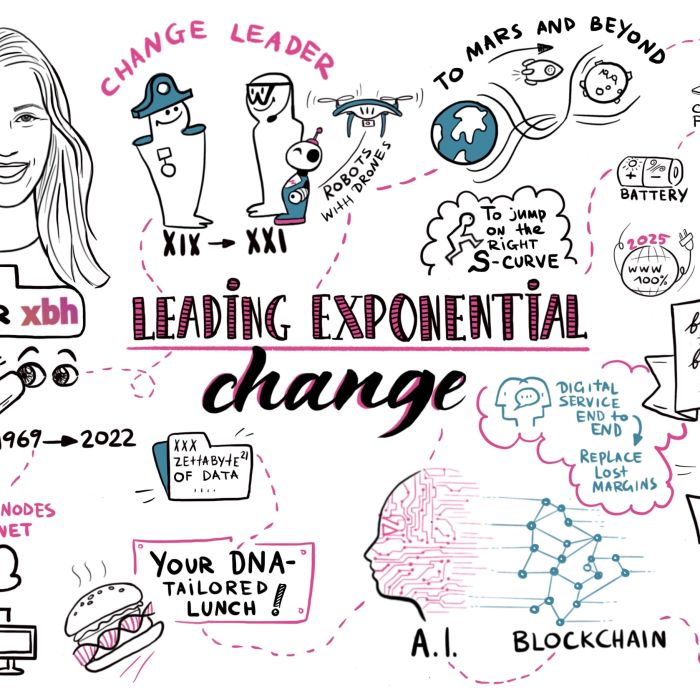 CHANGE LEADER
W
XIX → XXI
ROBOTS
WITH DRONES
TO MARS AND BEYOND
+ -
BATTERY
To jump
on the
RIGHT
S-CURVE
2025
WWW
100%
xbh
LEADING EXPONENTIAL
change
1969 → 2022
XXX
ZETTABYTE²¹
OF DATA
....
DIGITAL
SERVICE
END to
END
REPLACE
LOST
MARGINS
NODES
NET
YOUR DNA-
TAILORED
LUNCH!
A.I.
BLOCKCHAIN